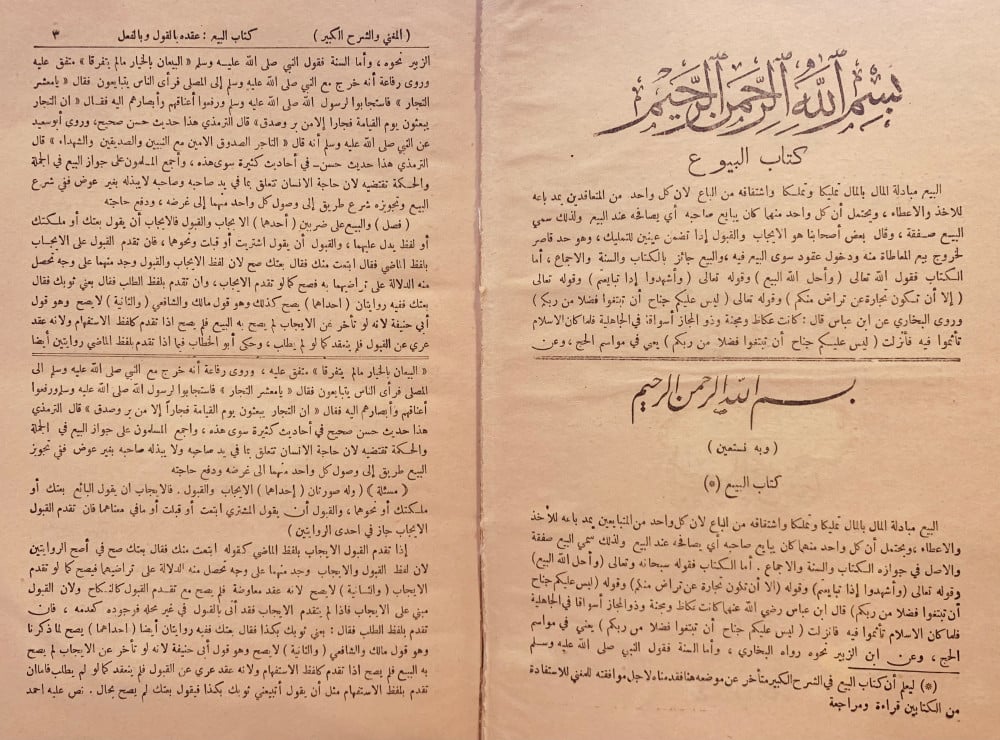 بسم الله الرحمن الرحيم
كتاب البيوع
البيع مبادلة المال بالمال تمليكا وتملكا واشتقاقه من الباع لان كل واحد من المتعاقدين يمد باعه
للاخذ والاعطاء، ويحتمل أن كل واحد منهما كان يبايع صاحبه أي يصافحه عند البيع ولذلك سمي
البيع صفقة، وقال بعض أصحابنا هو الايجاب والقبول إذا تضمن عينين للتمليك، وهو حد قاصر
لخروج بيع المعاطاة منه ودخول عقود سوى البيع فيه، والبيع جائز بالكتاب والسنة والاجماع، أما
الكتاب فقول الله تعالى (وأحل الله البيع) وقوله تعالى (وأشهدوا إذا تبايعتم) وقوله تعالى
(إلا أن تكون تجارة عن تراض منكم) وقوله تعالى (ليس عليكم جناح أن تبتغوا فضلا من ربكم)
وروى البخاري عن ابن عباس قال: كانت عكاظ ومجنة وذو المجاز أسواقا في الجاهلية فلما كان الاسلام
تأثموا فيه فأنزلت (ليس عليكم جناح أن تبتغوا فضلا من ربكم) يعني في مواسم الحج، وعن
بسم الله الرحمن الرحيم
(وبه نستعين)
كتاب البيع (*)
البيع مبادلة المال بالمال تمليكا وتملكا واشتقاقه من الباع لان كل واحد من المتبايعين يمد باعه للأخذ
والاعطاء، ويحتمل أن كل واحد منهما كان يبايع صاحبه أي يصافحه عند البيع ولذلك سمي البيع صفقة
والاصل في جوازه الكتاب والسنة والاجماع. أما الكتاب فقوله سبحانه وتعالى (وأحل الله البيع)
وقوله تعالى (وأشهدوا إذا تبايعتم) وقوله (الا أن تكون تجارة عن تراض منكم) وقوله (ليس عليكم جناح
أن تبتغوا فضلا من ربكم) قال ابن عباس رضي الله عنهما كانت عكاظ ومجنة وذو المجاز أسواقا في الجاهلية
فلما كان الاسلام تأثموا فيه فانزلت (ليس عليكم جناح أن تبتغوا فضلا من ربكم) يعني في مواسم
الحج، وعن ابن الزبير نحوه رواه البخاري، وأما السنة فقول النبي صلى الله عليه وسلم
(*) ليعلم أن كتاب البيع في الشرح الكبير متأخر عن موضعه هنا فقدمناه لاجل موافقته للمغني للاستفادة
من الكتابين قراءة ومراجعة
(المغني والشرح الكبير) كتاب البيع: عقده بالقول وبالفعل ٣
الزبير نحوه، وأما السنة فقول النبي صلى الله عليه وسلم «البيعان بالخيار مالم يتفرقا» متفق عليه
وروى رفاعة أنه خرج مع النبي صلى الله عليه وسلم إلى المصلى فرأى الناس يتبايعون فقال «يامعشر
التجار» فاستجابوا لرسول الله صلى الله عليه وسلم ورفعوا أعناقهم وأبصارهم اليه فقال «ان التجار
يبعثون يوم القيامة فجارا إلا من بر وصدق» قال الترمذي هذا حديث حسن صحيح، وروى أبو سعيد
عن النبي صلى الله عليه وسلم أنه قال «التاجر الصدوق الامين مع النبيين والصديقين والشهداء» قال
الترمذي هذا حديث حسن في أحاديث كثيرة سوى هذه، وأجمع المسلمون على جواز البيع في الجملة
والحكمة تقتضيه لان حاجة الانسان تتعلق بما في يد صاحبه وصاحبه لا يبذله بغير عوض ففي شرع
البيع وتجويزه شرع طريق إلى وصول كل واحد منهما إلى غرضه، ودفع حاجته
(فصل) والبيع على ضربين (أحدهما) الايجاب والقبول فالايجاب أن يقول بعتك أو ملكتك
أو لفظ يدل عليهما، والقبول أن يقول اشتريت أو قبلت ونحوهما، فان تقدم القبول على الايجاب
بلفظ الماضي فقال ابتعت منك فقال بعتك صح لان لفظ الايجاب والقبول وجد منهما على وجه تحصل
منه الدلالة على تراضيهما به فصح كما لو تقدم الايجاب، وان تقدم بلفظ الطلب فقال بعني ثوبك فقال
بعتك ففيه روايتان (احداهما) يصح كذلك وهو قول مالك والشافعي (والثانية) لا يصح وهو قول
أبي حنيفة لانه لو تأخر عن الايجاب لم يصح به البيع فلم يصح اذا تقدم كلفظ الاستفهام ولانه عقد
عري عن القبول فلم ينعقد كما لو لم يطلب، وحكى أبو الخطاب فيما اذا تقدم بلفظ الماضي روايتين أيضا
«البيعان بالخيار مالم يتفرقا» متفق عليه، وروى رفاعة أنه خرج مع النبي صلى الله عليه وسلم الى
المصلى فرأى الناس يتبايعون فقال «يامعشر التجار» فاستجابوا لرسول الله صلى الله عليه وسلم ورفعوا
أعناقهم وأبصارهم اليه فقال «ان التجار يبعثون يوم القيامة فجاراً إلا من بر وصدق» قال الترمذي
هذا حديث حسن صحيح في أحاديث كثيرة سوى هذه، واجمع المسلمون على جواز البيع في الجملة
والحكمة تقتضيه لان حاجة الانسان تتعلق بما في يد صاحبه ولا يبذله صاحبه بغير عوض ففي تجويز
البيع طريق إلى وصول كل واحد منهما الى غرضه ودفع حاجته
(مسئلة) (وله صورتان (إحداهما) الايجاب والقبول. فالايجاب ان يقول البائع بعتك أو
ملكتك أو نحوهما، والقبول أن يقول المشتري ابتعت أو قبلت أو مافي معناهما فان تقدم القبول
الايجاب جاز في احدى الروايتين)
إذا تقدم القبول الايجاب بلفظ الماضي كقوله ابتعت منك فقال بعتك صح في أصح الروايتين
لان لفظ القبول والايجاب وجد منهما على وجه تحصل منه الدلالة على تراضيهما فصح كما لو تقدم
الايجاب (والثانية) لا يصح لانه عقد معاوضة فلم يصح مع تقدم القبول كالنكاح ولان القبول
مبني على الايجاب فاذا لم يتقدم الايجاب فقد أتى بالقبول في غير محله فوجوده كعدمه، فان
تقدم بلفظ الطلب فقال: بعني ثوبك بكذا فقال بعتك ففيه روايتان أيضا (احداهما) يصح لما ذكرنا
وهو قول مالك والشافعي (والثانية) لا يصح وهو قول أبي حنيفة لانه لو تأخر عن الايجاب لم يصح
به البيع فلم يصح اذا تقدم كلفظ الاستفهام ولانه عقد عري عن القبول فلم ينعقد كما لو لم يطلب فاما ان
تقدم بلفظ الاستفهام مثل أن يقول أتبيعني ثوبك بكذا فيقول بعتك لم يصح بحال. نص عليه احمد